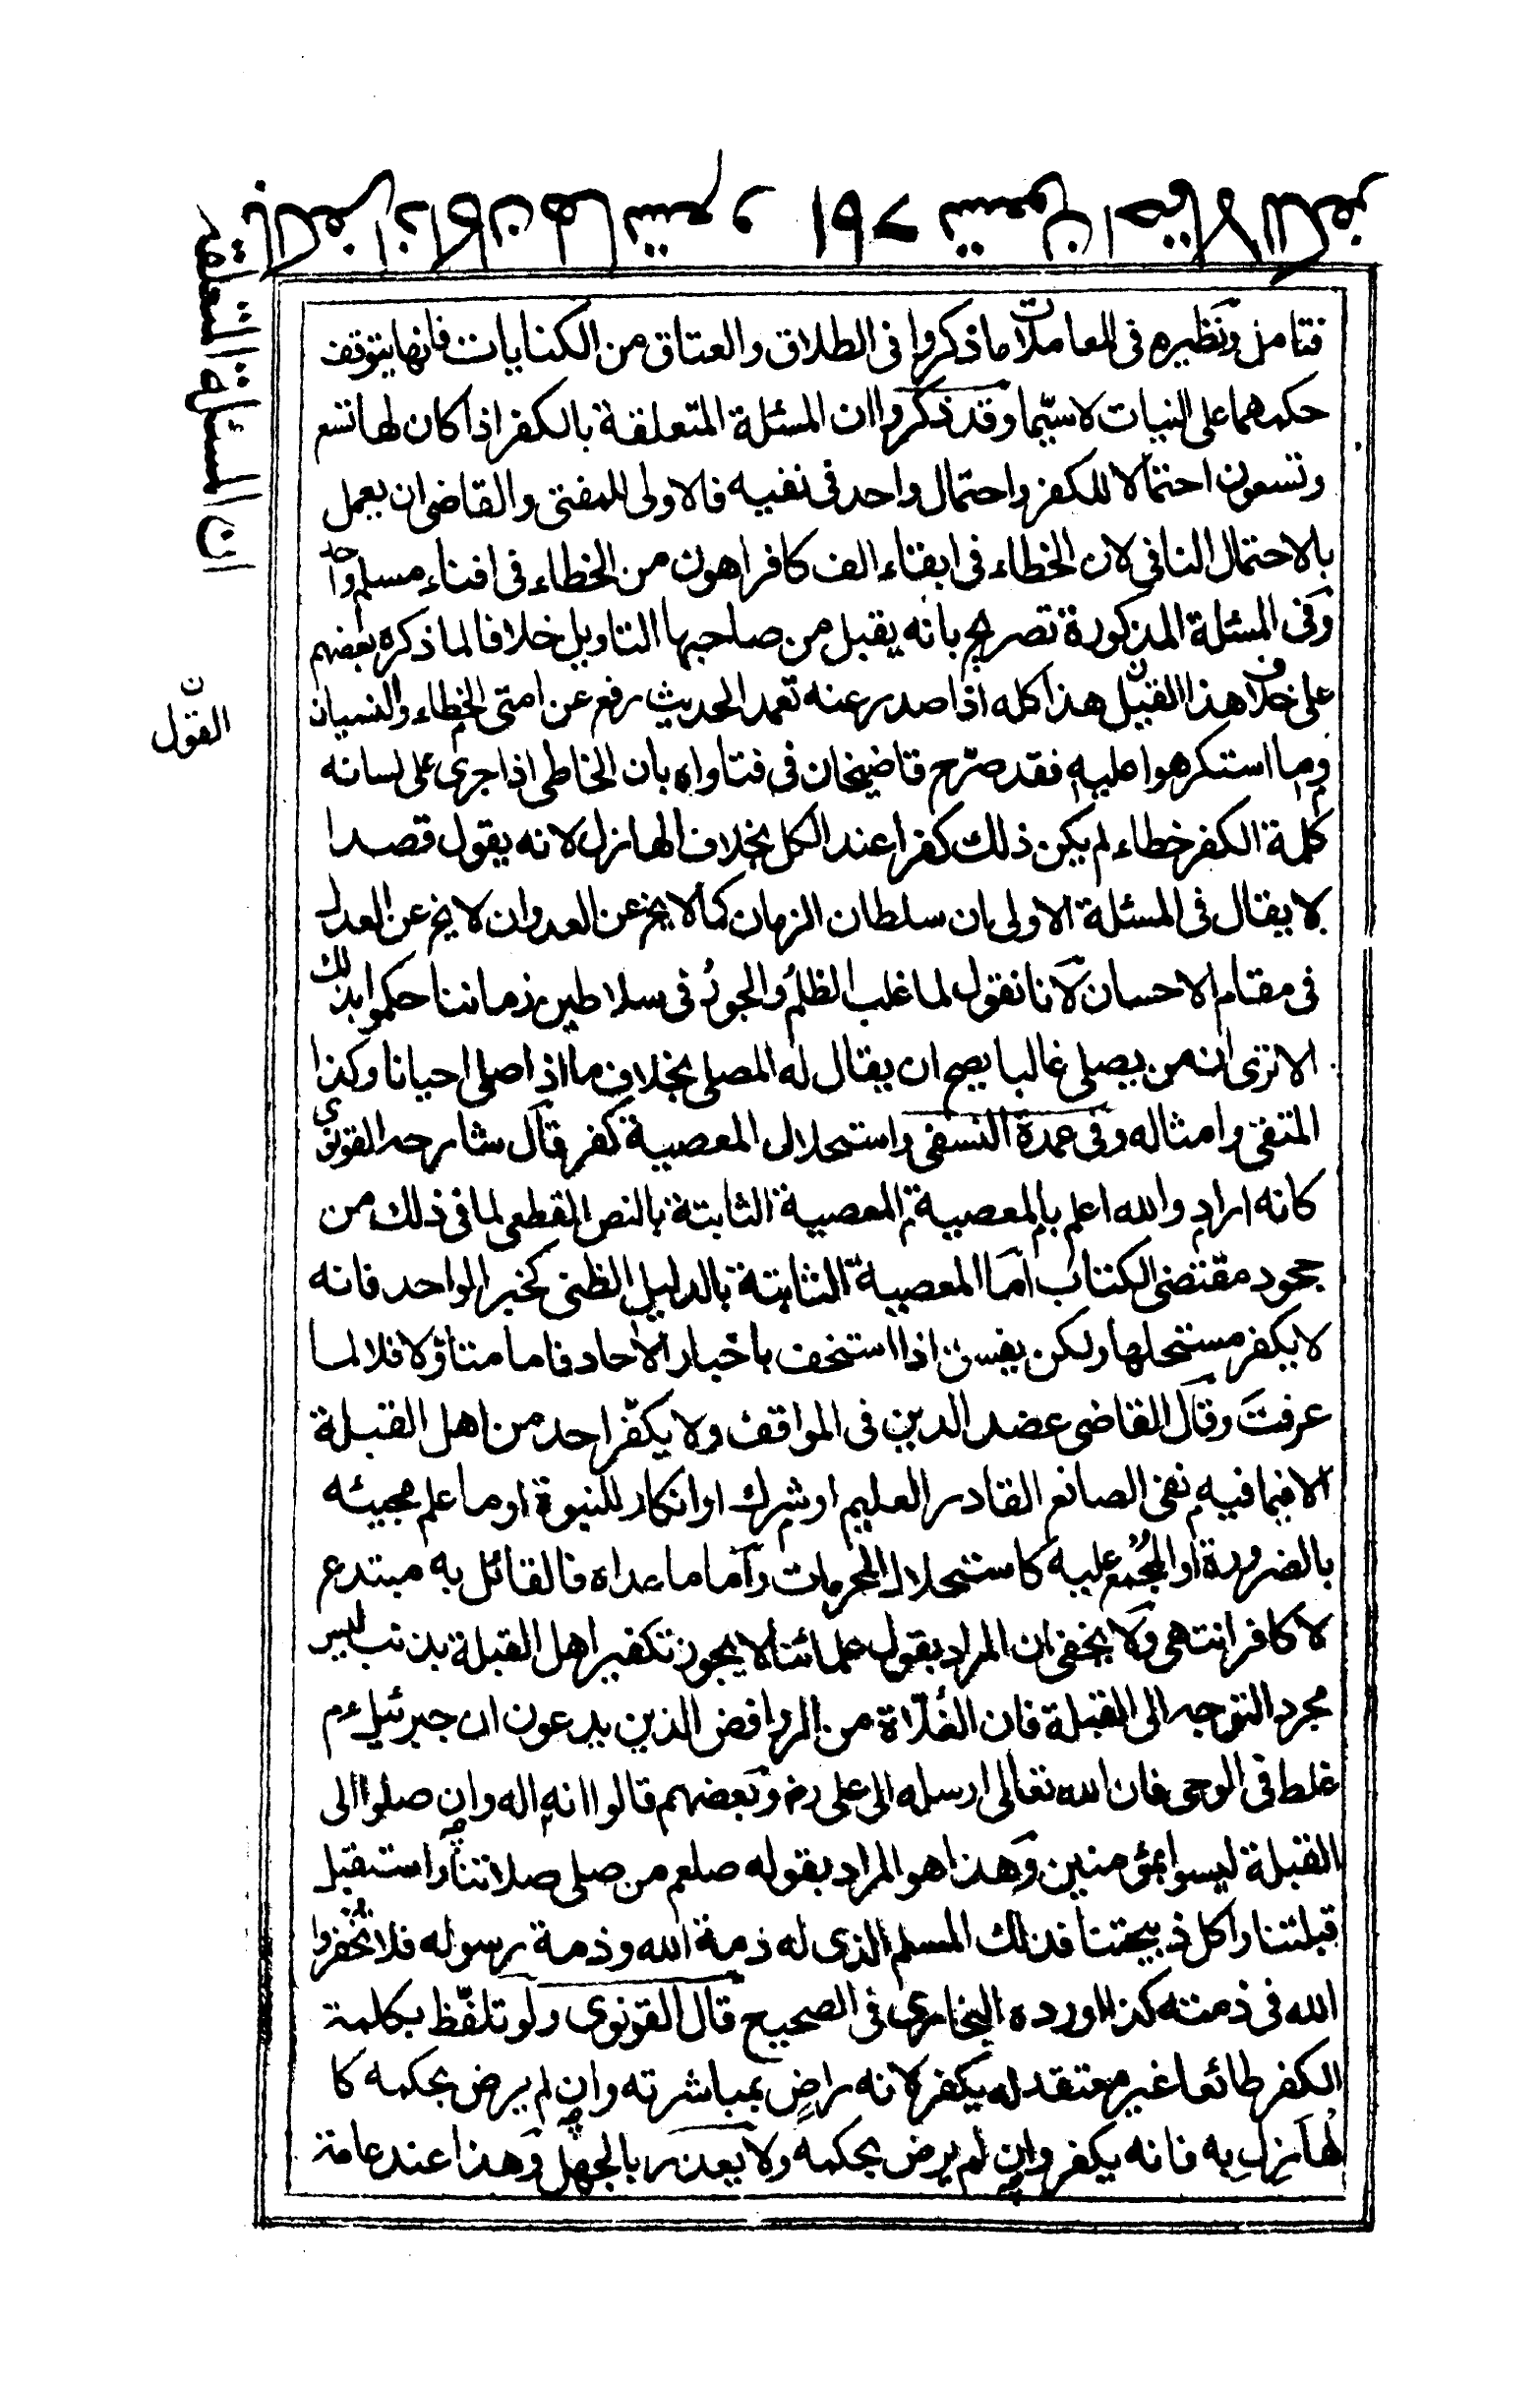 ان المسألة المتعلقة
بالكفر اذا كان لها تسع و ١٥٦ تسعون احتمالا للكفر
فتامل ونظيره فى المعاملات ما ذكروا فى الطلاق والعتاق من الكنايات فانها يتوقف
حكمهما على النيات لا سيّما وقد ذكروا ان المسئلة المتعلقة بالكفر اذا كان لها تسع
وتسعون احتمالا للكفر واحتمال واحد فى نفيه فالاولى للمفتى والقاضى ان يعمل
بالاحتمال النافى لان الخطاء فى ابقاء الف كافر اهون من الخطاء فى افناء مسلم واحد
وفى المسئلة المذكورة تصريح بانه يقبل من صاحبها التاويل خلافا لما ذكره بعضهم
على خلاف هذا القبيل هذا كله اذا صدر عنه تعمد الحديث رفع عن امتى الخطاء والنسيان
القول
وما استكرهوا عليه فقد صرّح قاضيخان فى فتاواه بان الخاطى اذا جرى على لسانه
كلمة الكفر خطاء لم يكن ذلك كفرا عند الكل بخلاف الهازل لانه يقول قصدا
لا يقال فى المسئلة الاولى بان سلطان الزمان كما لا يخ عن العدوان لا يخ عن العدل
فى مقام الاحسان لانا نقول لما غلب الظلم والجور فى سلاطين زماننا حكموا بذلك
الا ترى انه من يصلى غالبا يصح ان يقال له المصلى بخلاف ما اذا صلى احيانا وكذا
المتقى وامثاله وفى عمدة النسفى واستحلال المعصية كفر قال شارحه القونوى
كانه اراد والله اعلم بالمعصية المعصية الثابتة بالنص القطعى لما فى ذلك من
جحود مقتضى الكتاب اما المعصية الثابتة بالدليل الظنى كخبر الواحد فانه
لا يكفر مستحلها ولكن يفسق اذا استخف باخبار الاحاد فاما متاوّلا فلا لما
عرفت وقال القاضى عضد الدين فى المواقف ولا يكفّر احد من اهل القبلة
الا فيما فيه نفى الصانع القادر العليم او شرك او انكار للنبوة او ما علم مجيئه
بالضرورة او المجمع عليه كاستحلال المحرمات واما ما عداه فالقائل به مبتدع
لا كافر انتهى ولا يخفى ان المراد بقول علمائنا لا يجوز تكفير اهل القبلة بذنب ليس
مجرد التوجه الى القبلة فان الغلاة من الروافض الذين يدعون ان جبرئيل ءم
غلط فى الوحى فان الله تعالى ارسله الى على رض وبعضهم قالوا انه اله وان صلوا الى
القبلة ليسوا بمؤمنين وهذا هو المراد بقوله صلعم من صلى صلاتنا واستقبل
قبلتنا واكل ذبيحتنا فذلك المسلم الذى له ذمة الله وذمة رسوله فلا تخفروا
الله فى ذمته كذا اورده البخارى فى الصحيح قال القونوى ولو تلفّظ بكلمة
الكفر طائعا غير معتقد له يكفر لانه راضٍ بمباشرته وان لم يرض بحكمه كا
لهازل به فانه يكفر وان لم يرض بحكمه ولا يعذر بالجهل وهذا عند عامة